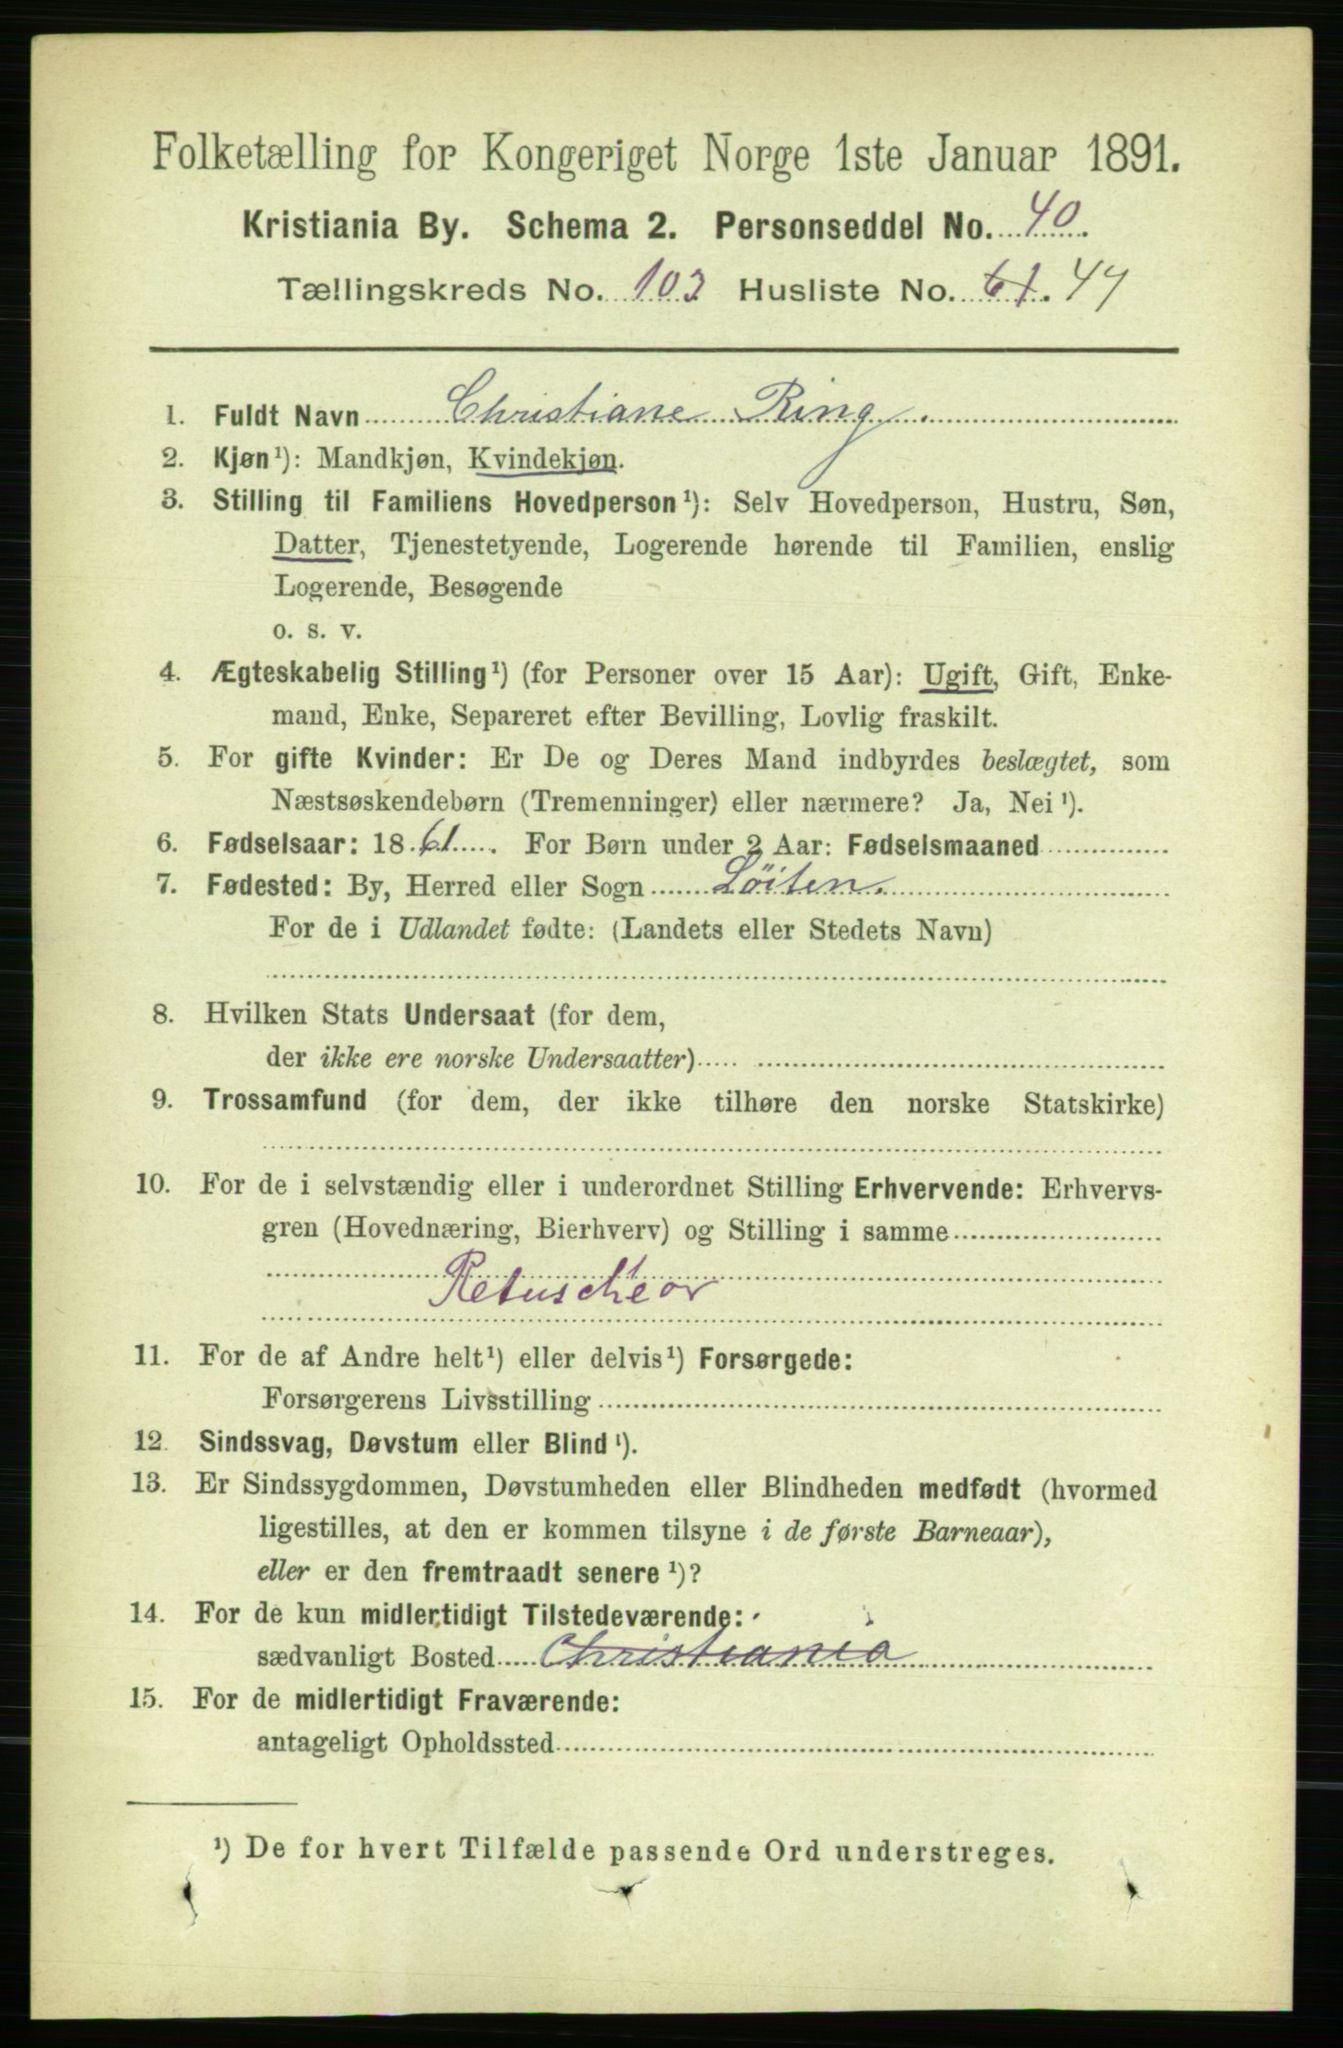 Folketælling for Kongeriget Norge 1ste Januar 1891.
Kristiania By. Schema 2. Personseddel No. 40.
Tællingskreds No. 103 Husliste No. 61. 47
1. Fuldt Navn Christiane Ring.
2. Kjøn¹): Mandkjøn, Kvindekjøn.
3. Stilling til Familiens Hovedperson¹): Selv Hovedperson, Hustru, Søn,
Datter, Tjenestetyende, Logerende hørende til Familien, enslig
Logerende, Besøgende
o. s. v.
4. Ægteskabelig Stilling¹) (for Personer over 15 Aar): Ugift, Gift, Enke-
mand, Enke, Separeret efter Bevilling, Lovlig fraskilt.
5. For gifte Kvinder: Er De og Deres Mand indbyrdes beslægtet, som
Næstsøskendebørn (Tremenninger) eller nærmere? Ja, Nei¹).
6. Fødselsaar: 1861. For Børn under 2 Aar: Fødselsmaaned
7. Fødested: By, Herred eller Sogn Löiten.
For de i Udlandet fødte: (Landets eller Stedets Navn)
8. Hvilken Stats Undersaat (for dem,
der ikke ere norske Undersaatter)
9. Trossamfund (for dem, der ikke tilhøre den norske Statskirke)
10. For de i selvstændig eller i underordnet Stilling Erhvervende: Erhvervs-
gren (Hovednæring, Bierhverv) og Stilling i samme
Retuscheør
11. For de af Andre helt¹) eller delvis¹) Forsørgede:
Forsørgerens Livsstilling
12. Sindssvag, Døvstum eller Blind¹).
13. Er Sindssygdommen, Døvstumheden eller Blindheden medfødt (hvormed
ligestilles, at den er kommen tilsyne i de første Barneaar),
eller er den fremtraadt senere¹)?
14. For de kun midlertidigt Tilstedeværende:
sædvanligt Bosted Christiania
15. For de midlertidigt Fraværende:
antageligt Opholdssted
¹) De for hvert Tilfælde passende Ord understreges.